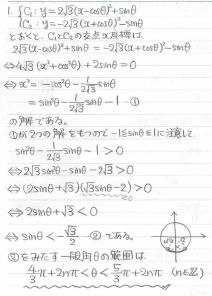 1. { C₁: y=2√3(x-cosθ)²+sinθ
{ C₂: y=-2√3(x+cosθ)²-sinθ
とおくと、C₁とC₂の交点x座標は、
2√3(x-cosθ)²+sinθ = -2√3(x+cosθ)²-sinθ
⇔ 4√3(x²+cos²θ)+2sinθ=0
⇔ x² = -cos²θ - 1/(2√3) sinθ
= sin²θ - 1/(2√3) sinθ - 1 -①
の解である。
①が2つの解をもつので -1≦sinθ≦1に注意して
sin²θ - 1/(2√3) sinθ - 1 > 0
⇔ 2√3sin²θ - sinθ - 2√3 > 0
⇔ (2sinθ+√3)(√3sinθ-2)>0
⇔ 2sinθ+√3<0
⇔ sinθ<-√3/2 -② である。
②をみたす一般角θの範囲は
4/3π+2nπ<θ<5/3π+2nπ (n∈ℤ)